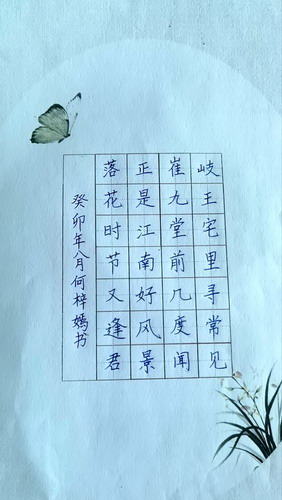 岐王宅里寻常见
崔九堂前几度闻
正是江南好风景
落花时节又逢君
癸卯年八月何梓嫣书